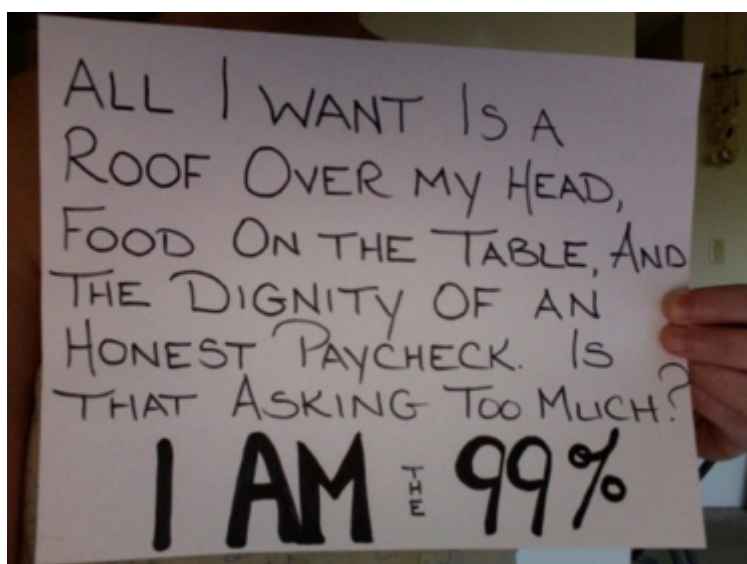 ALL I WANT IS A
ROOF OVER MY HEAD,
FOOD ON THE TABLE, AND
THE DIGNITY OF AN
HONEST PAYCHECK. IS
THAT ASKING TOO MUCH?
I AM THE 99%